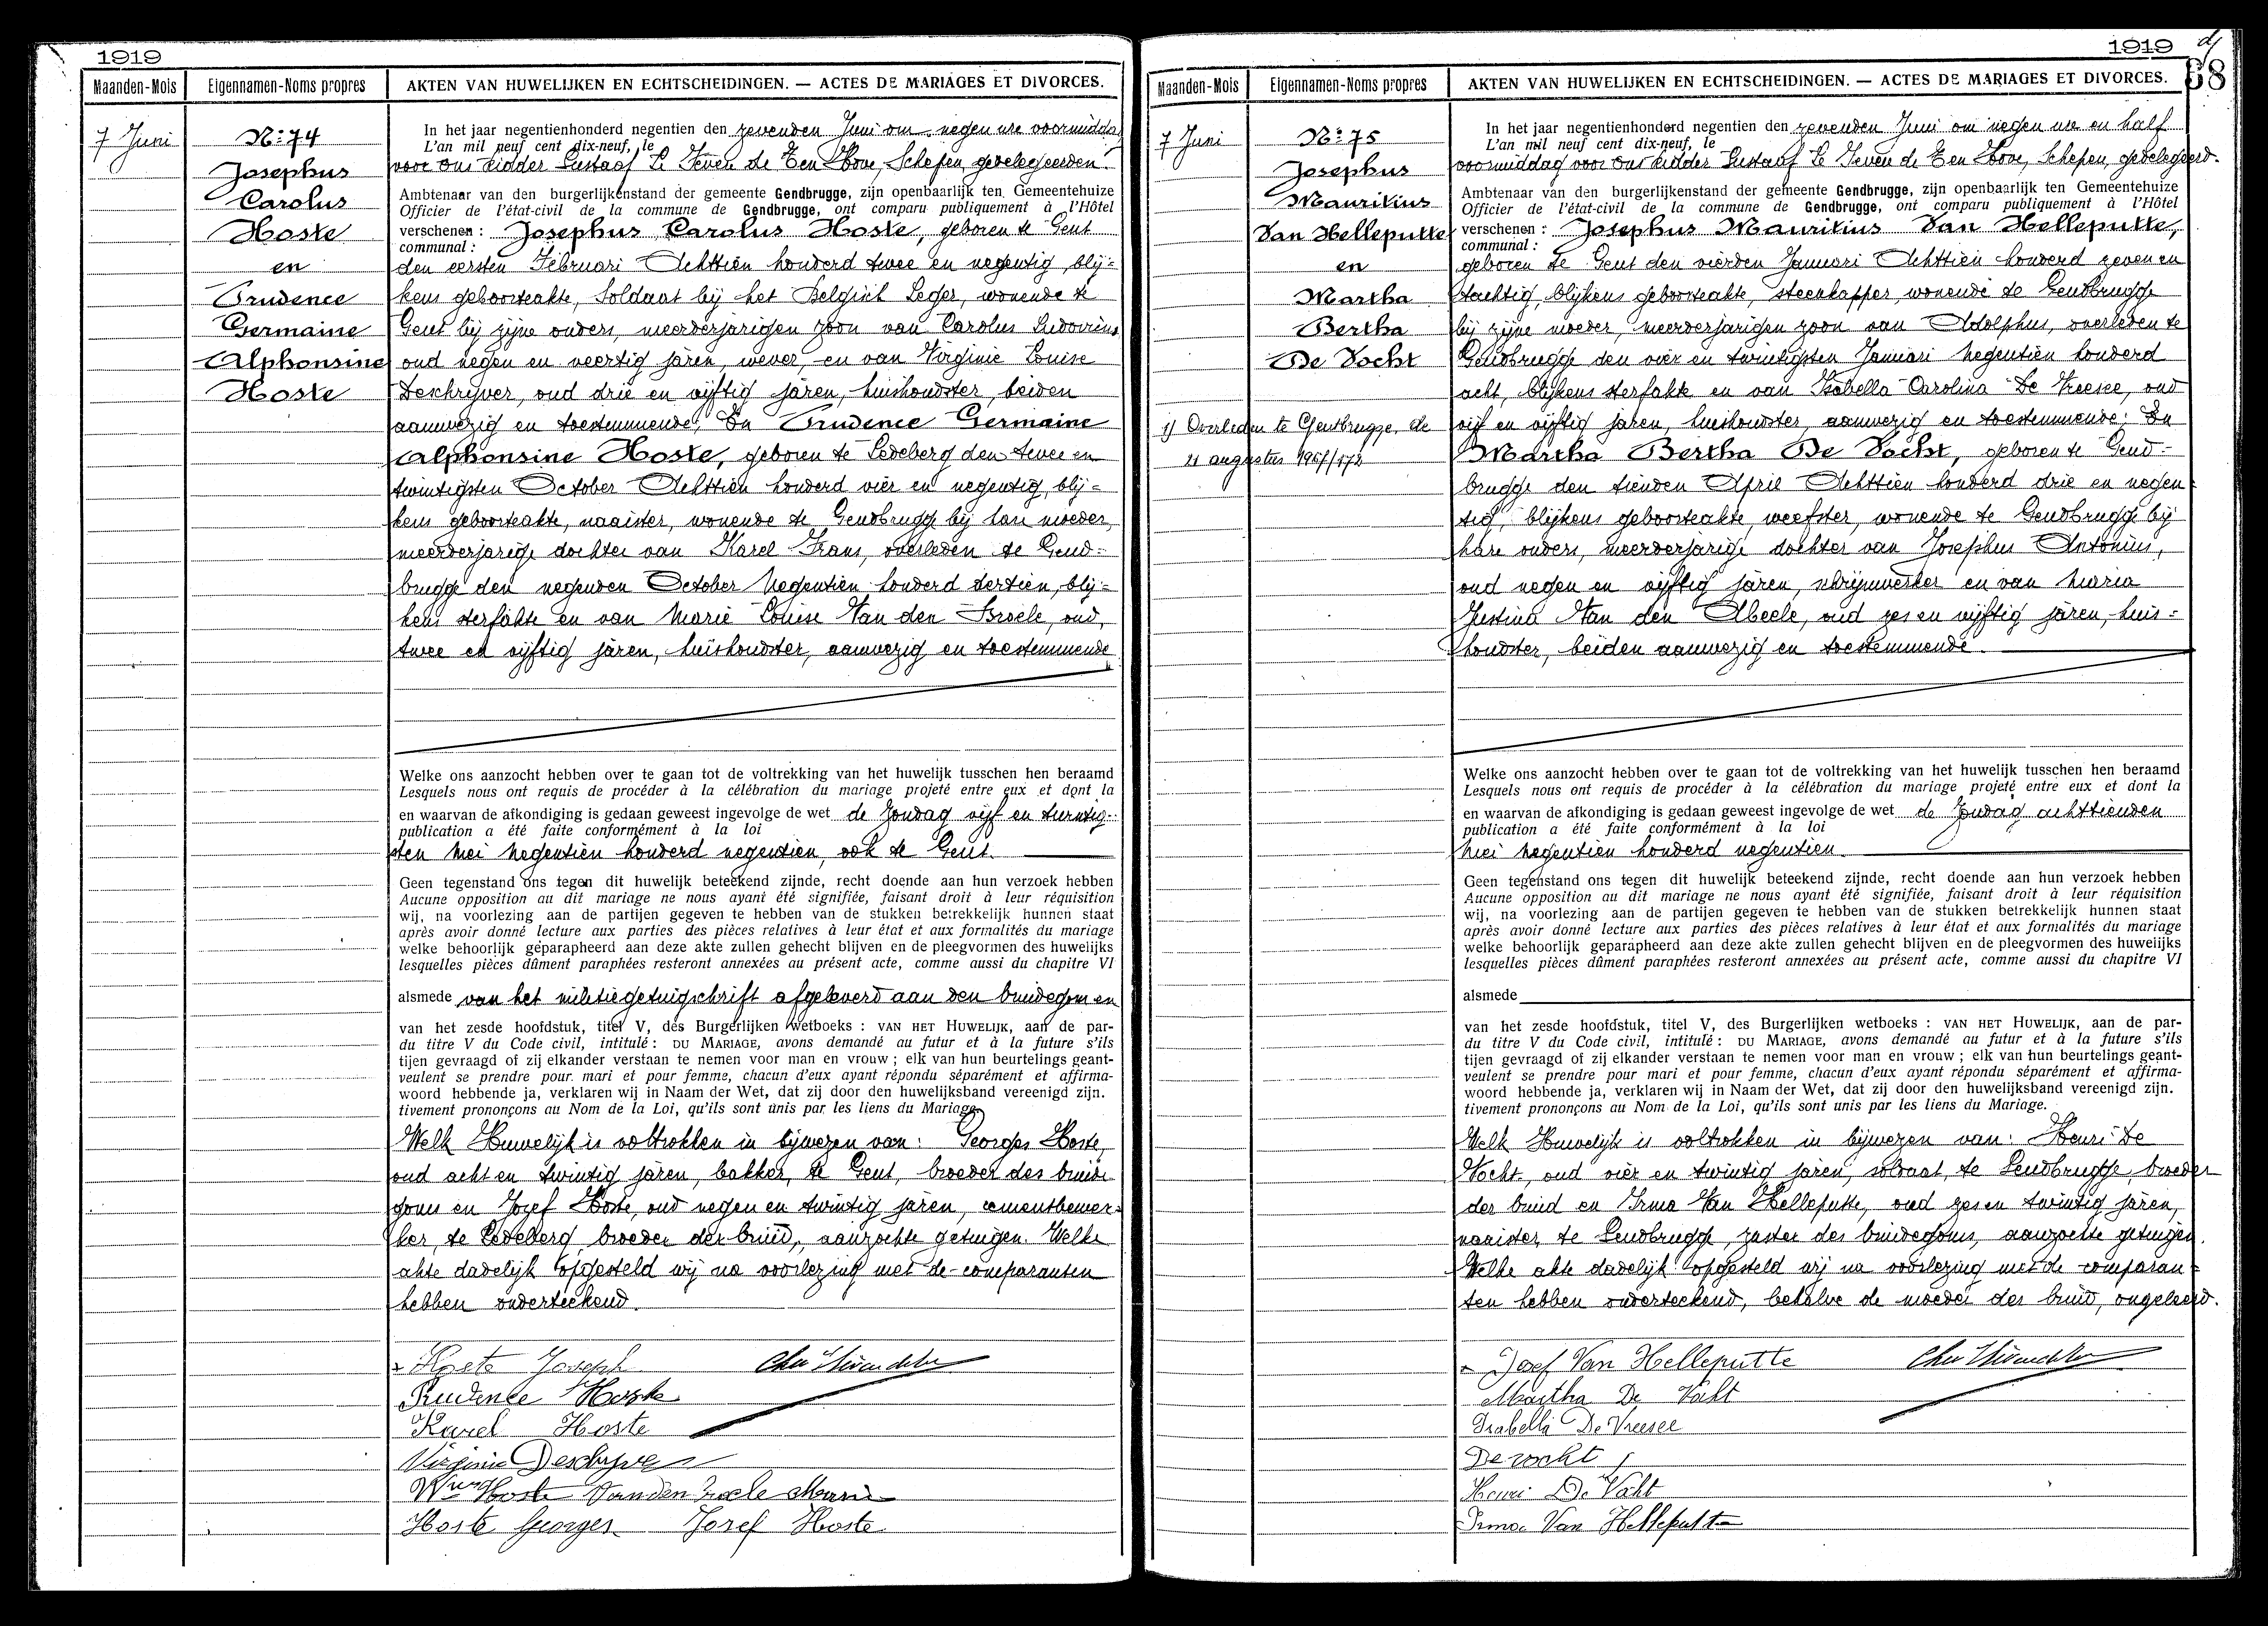 1919
Maanden-Mois Eigennamen-Noms propres AKTEN VAN HUWELIJKEN EN ECHTSCHEIDINGEN. — ACTES DE MARIAGES ET DIVORCES.
7 Juni
N: 74
Josephus
Carolus
Hoste
en
Prudence
Germaine
Alphonsine
Hoste
In het jaar negentienhonderd negentien den zevenden Juni om negen ure voormiddag
L'an mil neuf cent dix-neuf, le
voor ons Ridder Gustaaf Le Seven de Ten Hove, Schepen, gedelegeerden
Ambtenaar van den burgerlijkenstand der gemeente Gendbrugge, zijn openbaarlijk ten Gemeentehuize
Officier de l'état-civil de la commune de Gendbrugge, ont comparu publiquement à l'Hôtel
verschenen : Josephus Carolus Hoste, geboren te Gent
communal :
den eersten Februari Achttien honderd twee en negentig, blij=
kens geboorteakte, Soldaat bij het Belgisch Leger, wonende te
Gent bij zijne ouders, meerderjarigen zoon van Carolus Ludovicus
oud negen en veertig jaren, wever, en van Virginie Louise
Deschrijver, oud drie en vijftig jaren, huishoudster, beiden
aanwezig en toestemmende; En Prudence Germaine
Alphonsine Hoste, geboren te Ledeberg den twee en
twintigsten October Achttien honderd vier en negentig, blij=
kens geboorteakte, naaister, wonende te Gendbrugge bij hare moeder,
meerderjarige dochter van Karel Frans, overleden te Gend=
brugge den negenden October Negentien honderd dertien, blij=
kens sterfakte en van Marie Louise Van den Broele, oud,
twee en vijftig jaren, huishoudster, aanwezig en toestemmende
Welke ons aanzocht hebben over te gaan tot de voltrekking van het huwelijk tusschen hen beraamd
Lesquels nous ont requis de procéder à la célébration du mariage projeté entre eux et dont la
en waarvan de afkondiging is gedaan geweest ingevolge de wet de Zondag vijf en twintig-
publication a été faite conformément à la loi
sten Mei Negentien honderd negentien, ook te Gent.
Geen tegenstand ons tegen dit huwelijk beteekend zijnde, recht doende aan hun verzoek hebben
Aucune opposition au dit mariage ne nous ayant été signifiée, faisant droit à leur réquisition
wij, na voorlezing aan de partijen gegeven te hebben van de stukken betrekkelijk hunnen staat
après avoir donné lecture aux parties des pièces relatives à leur état et aux formalités du mariage
welke behoorlijk geparapheerd aan deze akte zullen gehecht blijven en de pleegvormen des huwelijks
lesquelles pièces dûment paraphées resteront annexées au présent acte, comme aussi du chapitre VI
alsmede van het militiegetuigschrift afgeleverd aan den bruidegom en
van het zesde hoofdstuk, titel V, des Burgerlijken wetboeks : VAN HET HUWELIJK, aan de par-
du titre V du Code civil, intitulé : DU MARIAGE, avons demandé au futur et à la future s'ils
tijen gevraagd of zij elkander verstaan te nemen voor man en vrouw ; elk van hun beurtelings geant-
veulent se prendre pour mari et pour femme, chacun d'eux ayant répondu séparément et affirma-
woord hebbende ja, verklaren wij in Naam der Wet, dat zij door den huwelijksband vereenigd zijn.
tivement prononçons au Nom de la Loi, qu'ils sont unis par les liens du Mariage.
Welk Huwelijk is voltrokken in bijwezen van : Georges Hoste,
oud acht en twintig jaren, bakker, te Gent, broeder des bruide
goms en Jozef Hoste, oud negen en twintig jaren, cementbewer=
ker, te Ledeberg, broeder der bruid, aanzochte getuigen. Welke
akte dadelijk opgesteld wij na voorlezing met de comparanten
hebben onderteekend.
Hoste Joseph
Prudence Hoste
Karel Hoste
Virginie Deschyver
Wwe Hoste Vanden Broele Marie
Hoste Georges Josef Hoste
1919
68
Maanden-Mois Eigennamen-Noms propres AKTEN VAN HUWELIJKEN EN ECHTSCHEIDINGEN. — ACTES DE MARIAGES ET DIVORCES.
7 Juni
N: 75
Josephus
Mauritius
Van Helleputte
en
Martha
Bertha
De Vocht
1) Overleden te Gentbrugge, de
21 augustus
In het jaar negentienhonderd negentien den zevenden Juni om negen ure en half
L'an mil neuf cent dix-neuf, le
voormiddag voor ons Ridder Gustaaf Le Seven de Ten Hove, Schepen, gedelegeerd.
Ambtenaar van den burgerlijkenstand der gemeente Gendbrugge, zijn openbaarlijk ten Gemeentehuize
Officier de l'état-civil de la commune de Gendbrugge, ont comparu publiquement à l'Hôtel
verschenen : Josephus Mauritius Van Helleputte,
communal :
geboren te Gent den vierden Januari Achttien honderd zeven en
tachtig, blijkens geboorteakte, steenkapper, wonende te Gendbrugge
bij zijne moeder, meerderjarigen zoon van Adolphus, overleden te
Gendbrugge den vier en twintigsten Januari Negentien honderd
acht, blijkens sterfakte en van Isabella Carolina De Vreesee, oud
vijf en vijftig jaren, huishoudster, aanwezig en toestemmende; En
Martha Bertha De Vocht, geboren te Gend=
brugge den tienden April Achttien honderd drie en negen=
tig, blijkens geboorteakte, weefster, wonende te Gendbrugge bij
hare ouders, meerderjarige dochter van Josephus Antonius,
oud negen en vijftig jaren, schrijnwerker en van Maria
Justina Van den Abeele, oud zes en vijftig jaren, huis=
houdster, beiden aanwezig en toestemmende.
Welke ons aanzocht hebben over te gaan tot de voltrekking van het huwelijk tusschen hen beraamd
Lesquels nous ont requis de procéder à la célébration du mariage projeté entre eux et dont la
en waarvan de afkondiging is gedaan geweest ingevolge de wet de Zondag achttienden
publication a été faite conformément à la loi
Mei Negentien honderd negentien.
Geen tegenstand ons tegen dit huwelijk beteekend zijnde, recht doende aan hun verzoek hebben
Aucune opposition au dit mariage ne nous ayant été signifiée, faisant droit à leur réquisition
wij, na voorlezing aan de partijen gegeven te hebben van de stukken betrekkelijk hunnen staat
après avoir donné lecture aux parties des pièces relatives à leur état et aux formalités du mariage
welke behoorlijk geparapheerd aan deze akte zullen gehecht blijven en de pleegvormen des huwelijks
lesquelles pièces dûment paraphées resteront annexées au présent acte, comme aussi du chapitre VI
alsmede
van het zesde hoofdstuk, titel V, des Burgerlijken wetboeks : VAN HET HUWELIJK, aan de par-
du titre V du Code civil, intitulé : DU MARIAGE, avons demandé au futur et à la future s'ils
tijen gevraagd of zij elkander verstaan te nemen voor man en vrouw ; elk van hun beurtelings geant-
veulent se prendre pour mari et pour femme, chacun d'eux ayant répondu séparément et affirma-
woord hebbende ja, verklaren wij in Naam der Wet, dat zij door den huwelijksband vereenigd zijn.
tivement prononçons au Nom de la Loi, qu'ils sont unis par les liens du Mariage.
Welk Huwelijk is voltrokken in bijwezen van : Henri De
Vocht, oud vier en twintig jaren, soldaat, te Gendbrugge, broeder
der bruid en Irma Van Helleputte, oud zes en twintig jaren,
naaister, te Gendbrugge, zuster des bruidegoms, aanzochte getuigen.
Welke akte dadelijk opgesteld wij na voorlezing met de comparan=
ten hebben onderteekend, behalve de moeder der bruid, ongeleerd.
Josef Van Helleputte
Martha De Vocht
Isabella De Vreesee
De vocht
Henri De Vocht
Irma Van Helleputte